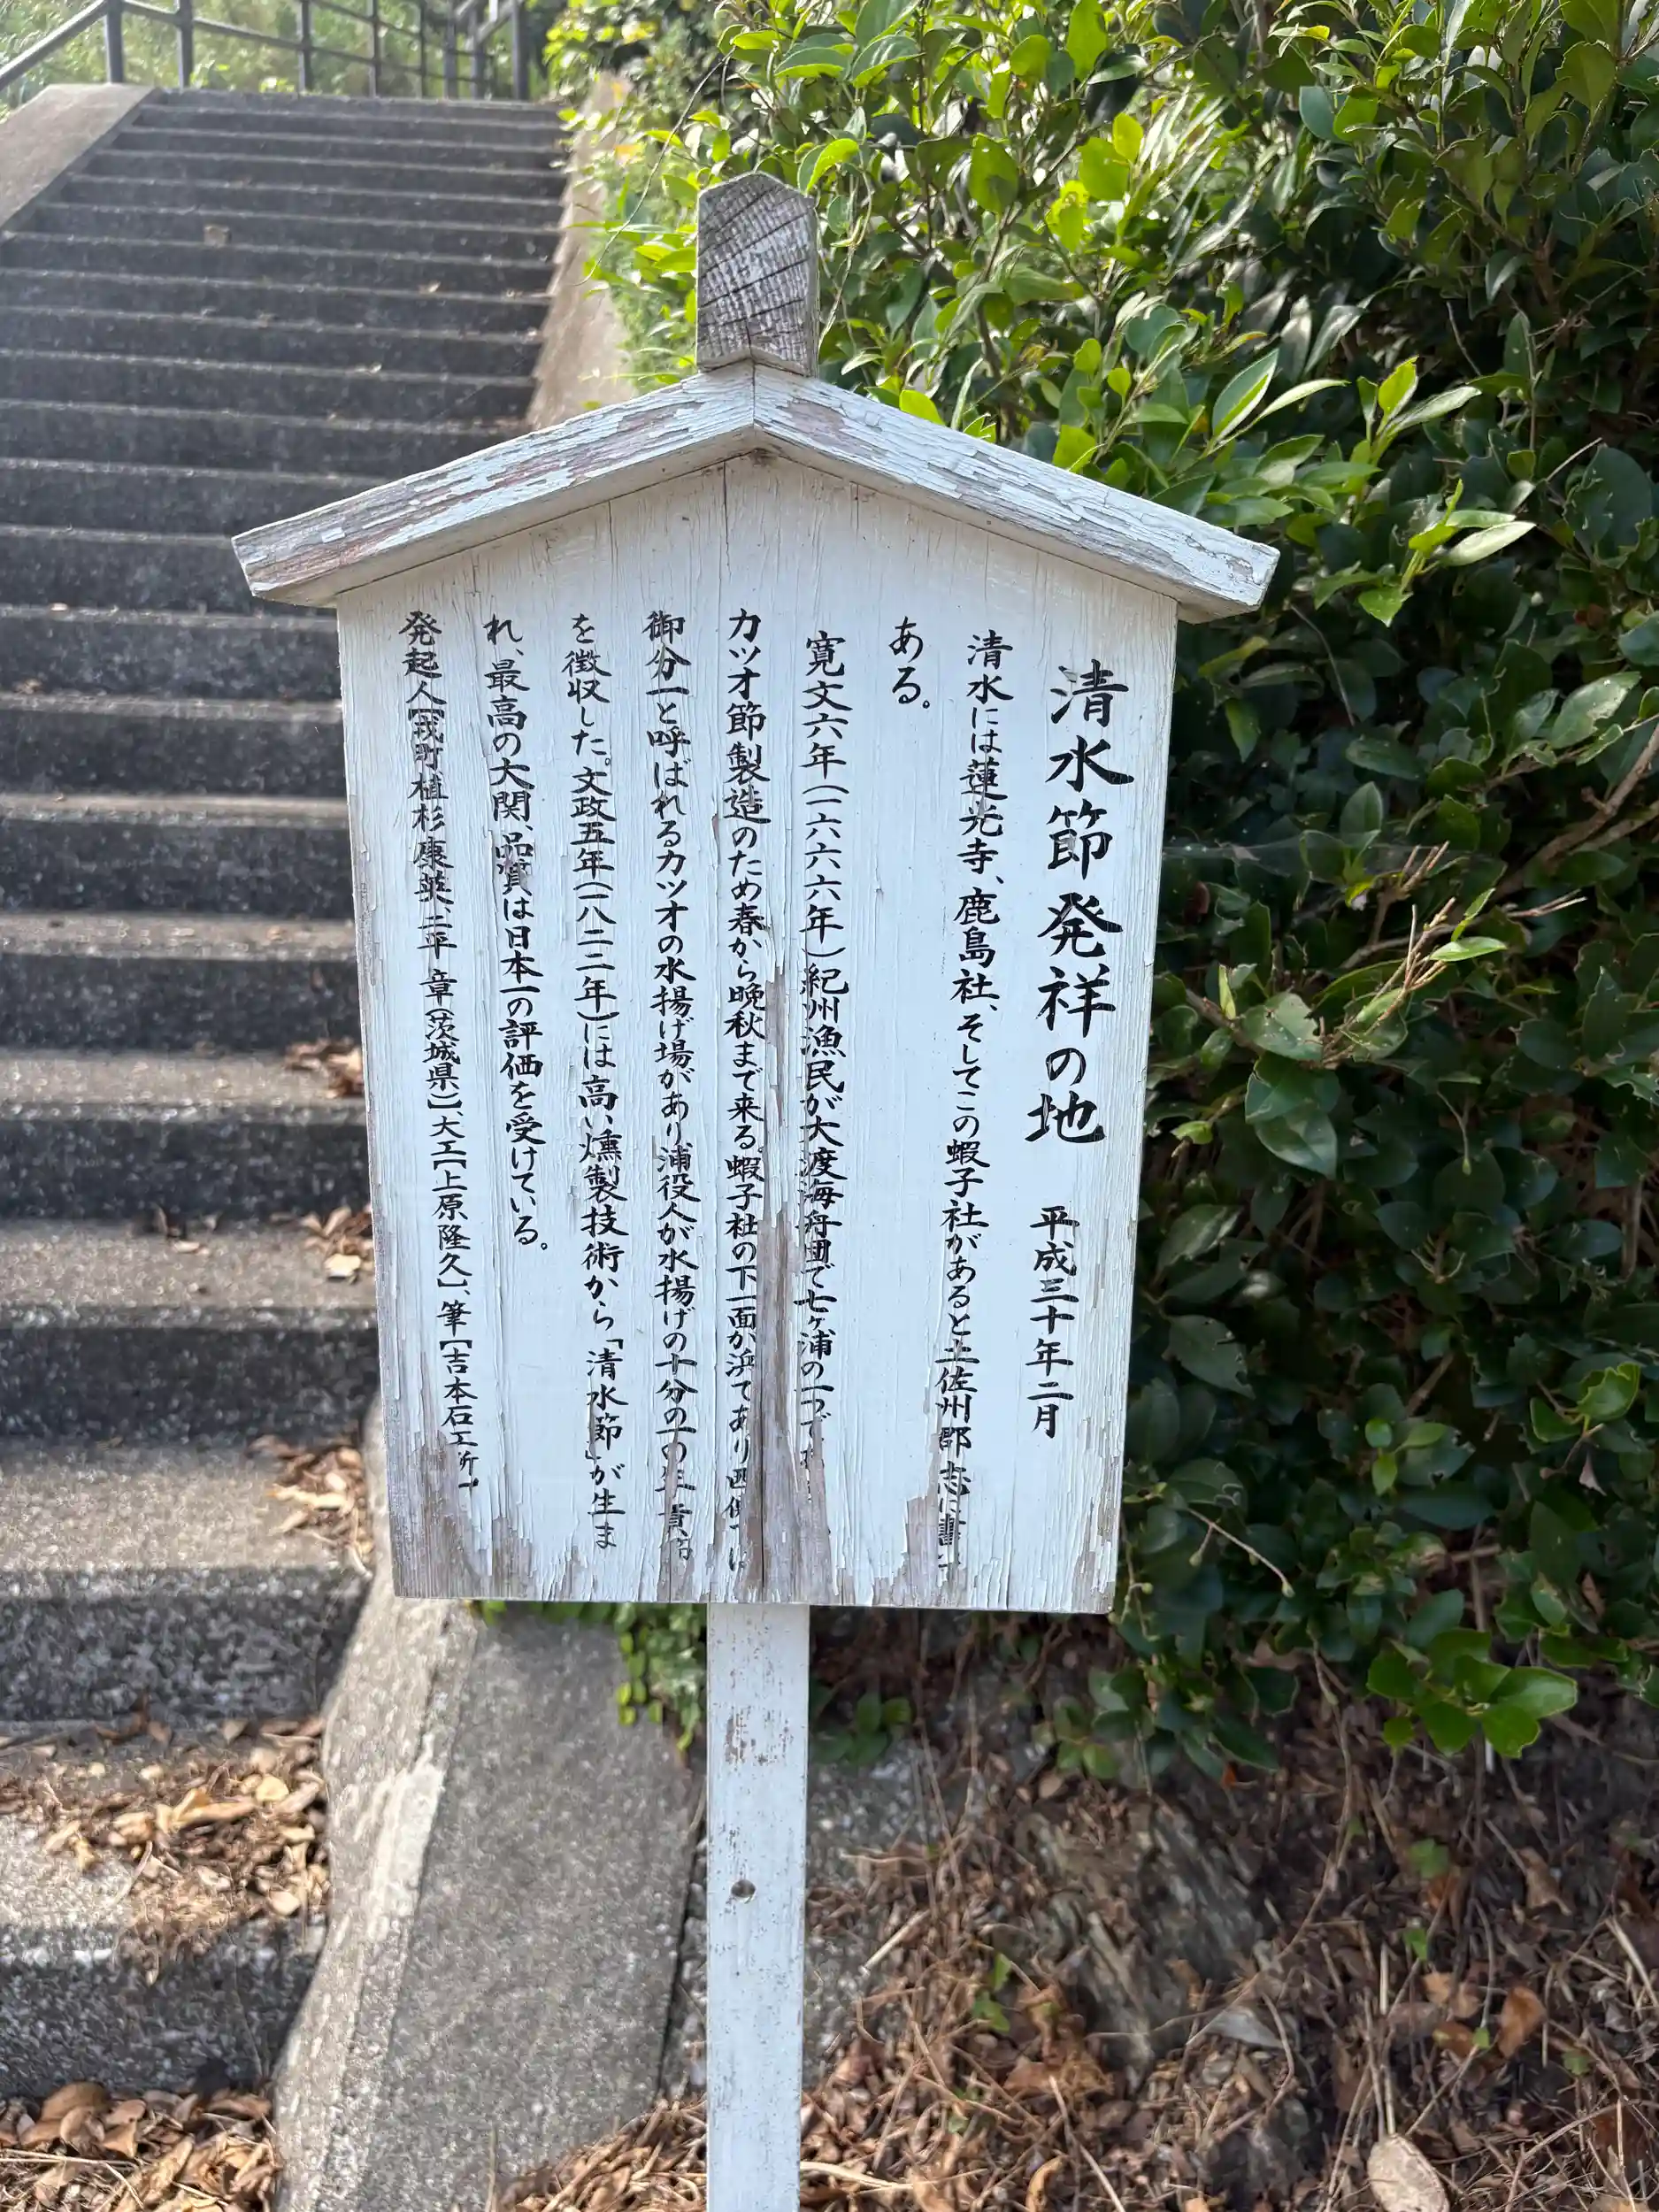 清水節発祥の地 平成三十年二月
清水には蓮光寺、鹿島社、そしてこの蝦子社があると土佐州郡志に書
ある。
寛文六年(一六六六年)紀州漁民が大渡海舟団で七ヶ浦の一つで
カツオ節製造のため春から晩秋まで来る。蝦子社の下一面が浜であり西側
御分一と呼ばれるカツオの水揚げ場があり浦役人が水揚げの十分の一の年貢
を徴収した。文政五年(一八二二年)には高い燻製技術から「清水節」が生ま
れ、最高の大関、品質は日本一の評価を受けている。
発起人【戎町植杉康英、二平 章(茨城県)】、大工【上原隆久】、筆【吉本石工所】